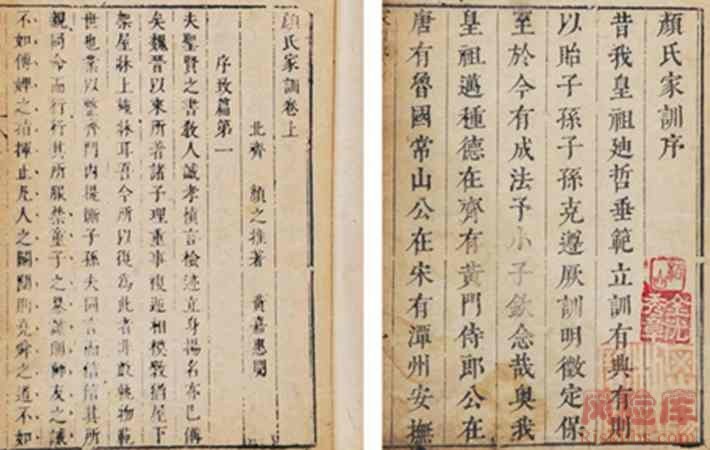 顏氏家訓序
昔我皇祖廸哲垂範立訓有典有則
以貽子孫子孫克遵厥訓明徵定保
至於今有成法予小子欽念哉奥我
皇祖邁種德在齊有黃門侍郎公在
唐有魯國常山公在宋有潭州安撫
顏氏家訓卷上
北齊 顏之推著 黃嘉惠閱
序致篇第一
夫聖賢之書教人誠孝慎言檢迹立身揚名亦已備
矣魏晉以來所著諸子理重事複遞相模斆猶屋下
架屋牀上施牀耳吾今所以復為此者非敢軌物範
世也業以整齊門內提撕子孫夫同言而信信其所
親同令而行行其所服禁童子之暴謔則師友之誡
不如傅婢之指揮止凡人之鬬鬩則堯舜之道不如
风险库